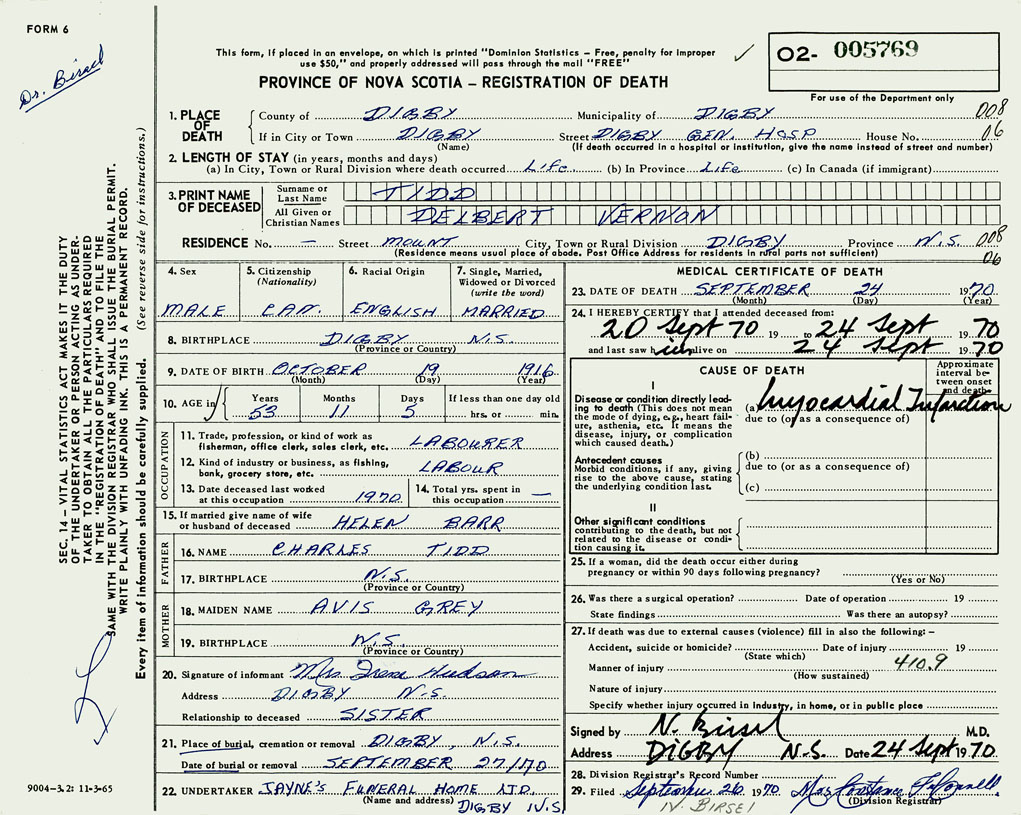 FORM 6
Dr. Birsel
This form, if placed in an envelope, on which is printed "Dominion Statistics – Free, penalty for improper
use $50," and properly addressed will pass through the mail "FREE"
PROVINCE OF NOVA SCOTIA – REGISTRATION OF DEATH
O2- 005769
For use of the Department only
1. PLACE OF DEATH
County of DIGBY Municipality of DIGBY 008
If in City or Town DIGBY Street DIGBY GEN. HOSP House No. 06
(Name) (If death occurred in a hospital or institution, give the name instead of street and number)
2. LENGTH OF STAY (in years, months and days)
(a) In City, Town or Rural Division where death occurred Life (b) In Province Life (c) In Canada (if immigrant)
3. PRINT NAME OF DECEASED
Surname or Last Name TIDD
All Given or Christian Names DELBERT VERNON
RESIDENCE No. – Street MOUNT City, Town or Rural Division DIGBY Province N.S. 008
(Residence means usual place of abode. Post Office Address for residents in rural parts not sufficient) 06
4. Sex MALE
5. Citizenship (Nationality) CAN.
6. Racial Origin ENGLISH
7. Single, Married, Widowed or Divorced (write the word) MARRIED
8. BIRTHPLACE DIGBY N.S.
(Province or Country)
9. DATE OF BIRTH OCTOBER 19 1916
(Month) (Day) (Year)
10. AGE in Years 53 Months 11 Days 5 If less than one day old hrs. or min.
OCCUPATION
11. Trade, profession, or kind of work as
fisherman, office clerk, sales clerk, etc. LABOURER
12. Kind of industry or business, as fishing,
bank, grocery store, etc. LABOUR
13. Date deceased last worked
at this occupation 1970
14. Total yrs. spent in
this occupation —
15. If married give name of wife
or husband of deceased HELEN BARR
FATHER
16. NAME CHARLES TIDD
17. BIRTHPLACE N.S.
(Province or Country)
MOTHER
18. MAIDEN NAME AVIS GREY
19. BIRTHPLACE N.S.
(Province or Country)
20. Signature of informant Mrs Irene Hudson
Address DIGBY N.S.
Relationship to deceased SISTER
21. Place of burial, cremation or removal DIGBY, N.S.
Date of burial or removal SEPTEMBER 27/70
22. UNDERTAKER JAYNE'S FUNERAL HOME LTD.
(Name and address) DIGBY N.S
MEDICAL CERTIFICATE OF DEATH
23. DATE OF DEATH SEPTEMBER 24 1970
(Month) (Day) (Year)
24. I HEREBY CERTIFY that I attended deceased from:
20 Sept 70 19 to 24 Sept 1970
and last saw him alive on 24 Sept 1970
CAUSE OF DEATH
Approximate interval between onset and death
I
Disease or condition directly leading to death (This does not mean
the mode of dying, e.g., heart failure, asthenia, etc. It means the
disease, injury, or complication
which caused death.)
(a) Myocardial Infarction
due to (or as a consequence of)
Antecedent causes
Morbid conditions, if any, giving
rise to the above cause, stating
the underlying condition last.
(b)
due to (or as a consequence of)
(c)
II
Other significant conditions
contributing to the death, but not
related to the disease or condition causing it.
25. If a woman, did the death occur either during
pregnancy or within 90 days following pregnancy?
(Yes or No)
26. Was there a surgical operation? Date of operation 19
State findings Was there an autopsy?
27. If death was due to external causes (violence) fill in also the following: –
Accident, suicide or homicide? Date of injury 19
(State which) 410.9
Manner of injury
(How sustained)
Nature of injury
Specify whether injury occurred in Industry, in home, or in public place
Signed by N. Birsel M.D.
Address DIGBY N.S. Date 24 Sept 1970
28. Division Registrar's Record Number
29. Filed September 26 1970 Mrs Constance
(Division Registrar)
N. BIRSEl
SEC. 14 – VITAL STATISTICS ACT MAKES IT THE DUTY
OF THE UNDERTAKER OR PERSON ACTING AS UNDER-
TAKER TO OBTAIN ALL THE PARTICULARS REQUIRED
IN THE "REGISTRATION OF DEATH" AND TO FILE THE
SAME WITH THE DIVISION REGISTRAR WHO SHALL ISSUE THE BURIAL PERMIT.
WRITE PLAINLY WITH UNFADING INK. THIS IS A PERMANENT RECORD.
Every item of information should be carefully supplied. (See reverse side for instructions.)
9004-3.2: 11-3-65